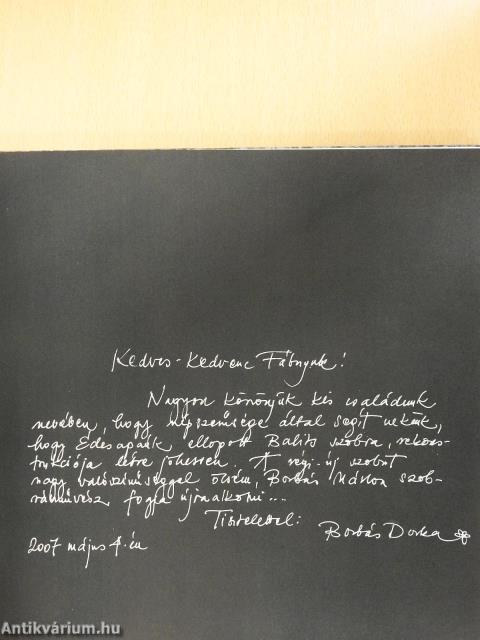 Kedves - Kedvenc Fábnynk!
Nagyon köszönjük kis családunk
nevében, hogy népszerűsége által segít nekünk,
hogy Édesapánk ellopott Balits szobra, rekons-
trukciója létre jöhessen. A régi-új szobrot
nagy valószínűséggel öcsém, Borbás Márton szob-
rászművész fogja újraalkotni...
Tisztelettel:
Borbás Dorka
2007 május 4.-én
Antikvárium.hu